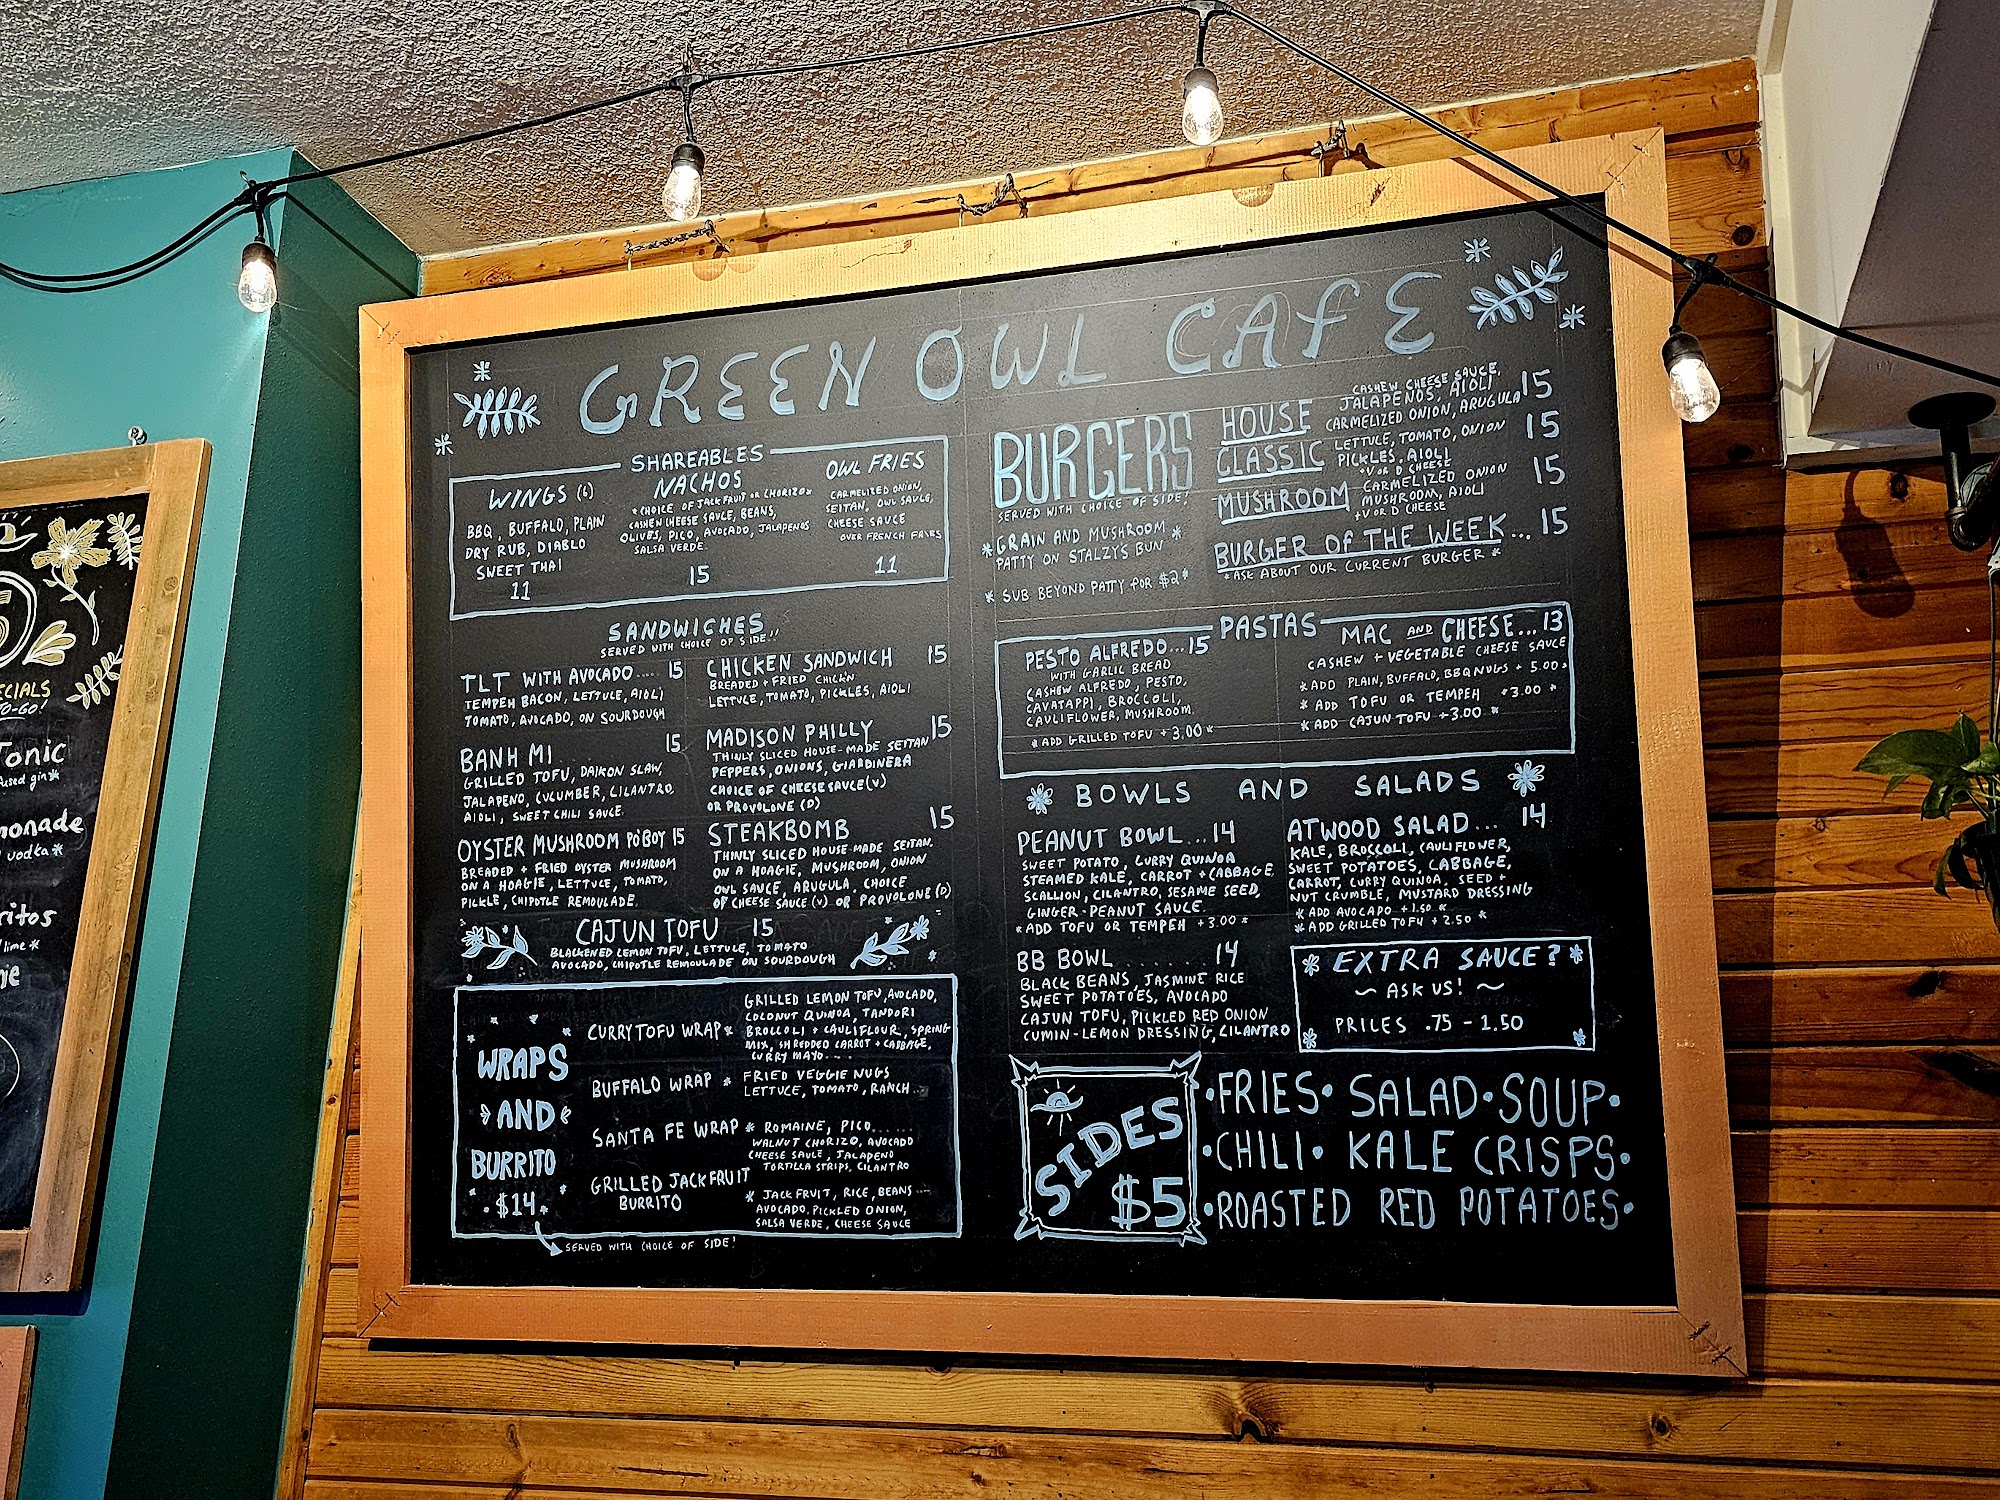 GREEN OWL CAFE
SHAREABLES
WINGS (6)
BBQ, BUFFALO, PLAIN
DRY RUB, DIABLO
SWEET THAI
11
NACHOS
*CHOICE OF JACKFRUIT OR CHORIZO*
CASHEW CHEESE SAUCE, BEANS,
OLIVES, PICO, AVOCADO, JALAPENOS
SALSA VERDE.
15
OWL FRIES
CARMELIZED ONION,
SEITAN, OWL SAUCE,
CHEESE SAUCE
OVER FRENCH FRIES
11
SANDWICHES
SERVED WITH CHOICE OF SIDE!!
TLT WITH AVOCADO.... 15
TEMPEH BACON, LETTUCE, AIOLI
TOMATO, AVOCADO, ON SOURDOUGH
BANH MI 15
GRILLED TOFU, DAIKON SLAW,
JALAPENO, CUCUMBER, CILANTRO,
AIOLI, SWEET CHILI SAUCE.
OYSTER MUSHROOM PO'BOY 15
BREADED + FRIED OYSTER MUSHROOM
ON A HOAGIE, LETTUCE, TOMATO,
PICKLE, CHIPOTLE REMOULADE.
CHICKEN SANDWICH 15
BREADED + FRIED CHICK'N
LETTUCE, TOMATO, PICKLES, AIOLI
MADISON PHILLY 15
THINLY SLICED HOUSE-MADE SEITAN
PEPPERS, ONIONS, GIARDINERA
CHOICE OF CHEESE SAUCE (V)
OR PROVOLONE (D)
STEAKBOMB 15
THINLY SLICED HOUSE-MADE SEITAN,
ON A HOAGIE, MUSHROOM, ONION
OWL SAUCE, ARUGULA, CHOICE
OF CHEESE SAUCE (V) OR PROVOLONE (D)
CAJUN TOFU 15
BLACKENED LEMON TOFU, LETTUCE, TOMATO
AVOCADO, CHIPOTLE REMOULADE ON SOURDOUGH
WRAPS
AND
BURRITO
$14
CURRY TOFU WRAP*
GRILLED LEMON TOFU, AVOCADO,
COCONUT QUINOA, TANDORI
BROCCOLI + CAULIFLOUR, SPRING
MIX, SHREDDED CARROT + CABBAGE,
CURRY MAYO...
BUFFALO WRAP *
FRIED VEGGIE NUGS
LETTUCE, TOMATO, RANCH...
SANTA FE WRAP *
ROMAINE, PICO......
WALNUT CHORIZO, AVOCADO
CHEESE SAUCE, JALAPENO
TORTILLA STRIPS, CILANTRO
GRILLED JACKFRUIT
BURRITO
* JACKFRUIT, RICE, BEANS...
AVOCADO, PICKLED ONION,
SALSA VERDE, CHEESE SAUCE
SERVED WITH CHOICE OF SIDE!
BURGERS
SERVED WITH CHOICE OF SIDE!
*GRAIN AND MUSHROOM *
PATTY ON STALZY'S BUN
* SUB BEYOND PATTY FOR $2*
HOUSE
CASHEW CHEESE SAUCE,
JALAPENOS, AIOLI
CARMELIZED ONION, ARUGULA
15
CLASSIC
LETTUCE, TOMATO, ONION
PICKLES, AIOLI
+V OR D CHEESE
15
MUSHROOM
CARMELIZED ONION
MUSHROOM, AIOLI
+V OR D CHEESE
15
BURGER OF THE WEEK... 15
*ASK ABOUT OUR CURRENT BURGER *
PASTAS
PESTO ALFREDO...15
WITH GARLIC BREAD
CASHEW ALFREDO, PESTO,
CAVATAPPI, BROCCOLI,
CAULIFLOWER, MUSHROOM.
*ADD GRILLED TOFU + 3.00*
MAC AND CHEESE...13
CASHEW + VEGETABLE CHEESE SAUCE
*ADD PLAIN, BUFFALO, BBQ NUGS + 5.00*
* ADD TOFU OR TEMPEH +3.00 *
*ADD CAJUN TOFU +3.00 *
BOWLS AND SALADS
PEANUT BOWL...14
SWEET POTATO, CURRY QUINOA
STEAMED KALE, CARROT + CABBAGE
SCALLION, CILANTRO, SESAME SEED,
GINGER-PEANUT SAUCE.
*ADD TOFU OR TEMPEH +3.00 *
BB BOWL ....... 14
BLACK BEANS, JASMINE RICE
SWEET POTATOES, AVOCADO
CAJUN TOFU, PICKLED RED ONION
CUMIN-LEMON DRESSING, CILANTRO
ATWOOD SALAD... 14
KALE, BROCCOLI, CAULIFLOWER,
SWEET POTATOES, CABBAGE,
CARROT, CURRY QUINOA, SEED +
NUT CRUMBLE, MUSTARD DRESSING
* ADD AVOCADO +1.50 *
* ADD GRILLED TOFU + 2.50 *
* EXTRA SAUCE? *
~ ASK US! ~
PRICES .75 - 1.50
SIDES
$5
•FRIES• SALAD•SOUP•
•CHILI• KALE CRISPS•
•ROASTED RED POTATOES•
ECIALS
TO-GO!
Tonic
fused gin*
monade
vodka*
ritos
lime*